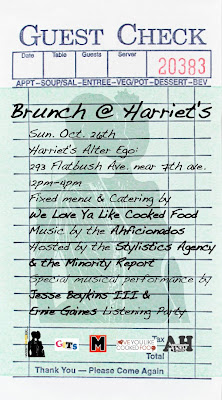 GUEST CHECK
Date Table Guests Server
20383
APPT-SOUP/SAL-ENTREE-VEG/POT-DESSERT-BEV
Brunch @ Harriet's
Sun. Oct. 26th
Harriet's Alter Ego:
293 Flatbush Ave. near 7th ave.
2pm-4pm
Fixed menu & Catering by
We Love Ya Like Cooked Food
Music by the Ahficionados
Hosted by the Stylistics Agency
& the Minority Report
Special musical performance by
Jesse Boykins III &
Ernie Gaines Listening Party
GTS M LOVE YOU LIKE COOKED FOOD AH Tax
Total
Thank You — Please Come Again